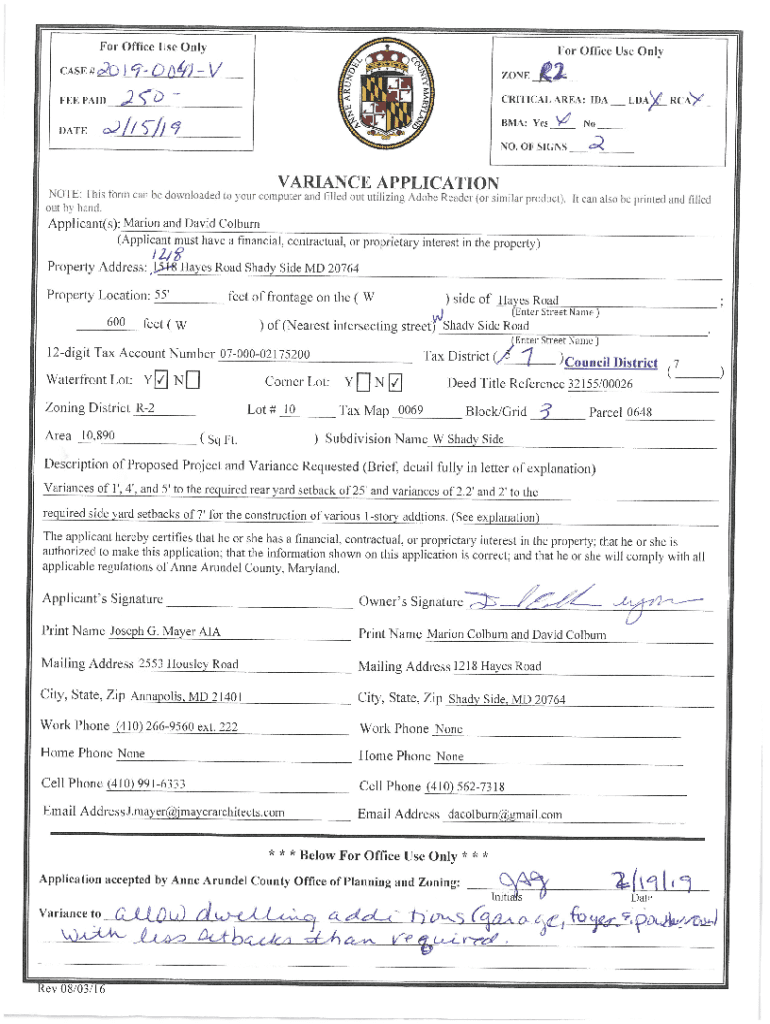 For Office Use Only
CASE # 2019-0041-V
FEE PAID 250-
DATE 2/15/19
ANNE ARUNDEL COUNTY MARYLAND
For Office Use Only
ZONE R2
CRITICAL AREA: IDA ___ LDA X RCA X
BMA: Yes X No ___
NO. OF SIGNS 2
VARIANCE APPLICATION
NOTE: This form can be downloaded to your computer and filled out utilizing Adobe Reader (or similar product). It can also be printed and filled
out by hand.
Applicant(s): Marion and David Colburn
(Applicant must have a financial, contractual, or proprietary interest in the property)
1218
Property Address: 1518 Hayes Road Shady Side MD 20764
Property Location: 55' feet of frontage on the ( W ) side of Hayes Road ;
(Enter Street Name )
600 feet ( W ) of (Nearest intersecting street) W Shady Side Road .
(Enter Street Name )
12-digit Tax Account Number 07-000-02175200 Tax District ( 7 ) Council District ( 7 )
Waterfront Lot: Y ☑ N ☐ Corner Lot: Y ☐ N ☑ Deed Title Reference 32155/00026
Zoning District R-2 Lot # 10 Tax Map 0069 Block/Grid 3 Parcel 0648
Area 10,890 ( Sq Ft. ) Subdivision Name W Shady Side
Description of Proposed Project and Variance Requested (Brief, detail fully in letter of explanation)
Variances of 1', 4', and 5' to the required rear yard setback of 25' and variances of 2.2' and 2' to the
required side yard setbacks of 7' for the construction of various 1-story addtions. (See explanation)
The applicant hereby certifies that he or she has a financial, contractual, or proprietary interest in the property; that he or she is
authorized to make this application; that the information shown on this application is correct; and that he or she will comply with all
applicable regulations of Anne Arundel County, Maryland.
Applicant's Signature Owner's Signature
Print Name Joseph G. Mayer AIA Print Name Marion Colburn and David Colburn
Mailing Address 2553 Housley Road Mailing Address 1218 Hayes Road
City, State, Zip Annapolis, MD 21401 City, State, Zip Shady Side, MD 20764
Work Phone (410) 266-9560 ext. 222 Work Phone None
Home Phone None Home Phone None
Cell Phone (410) 991-6333 Cell Phone (410) 562-7318
Email Address J.mayer@jmayerarchitects.com Email Address dacolburn@gmail.com
* * * Below For Office Use Only * * *
Application accepted by Anne Arundel County Office of Planning and Zoning: 2/19/19
Initials Date
Variance to allow dwelling additions (garage, foyer & powder room)
with less setbacks than required.
Rev 08/03/16